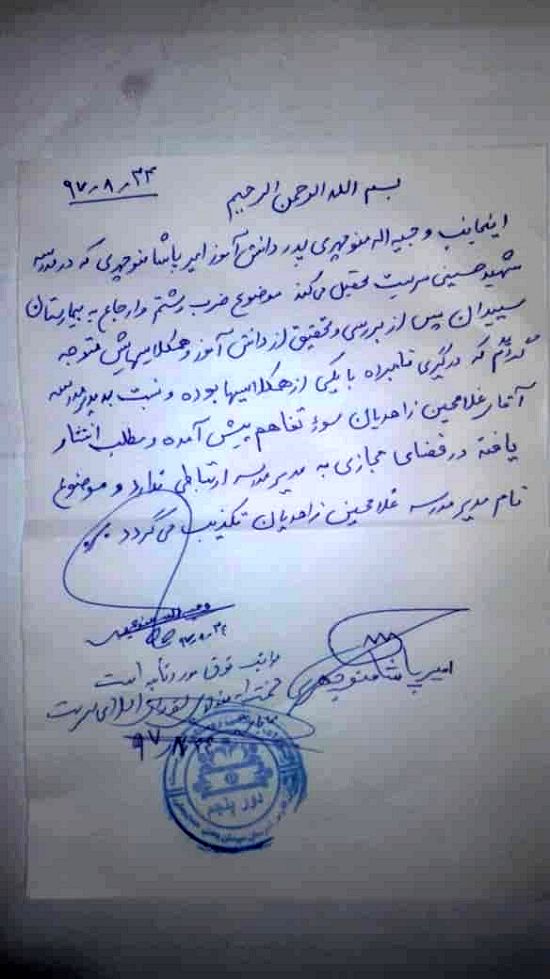 بسم الله الرحمن الرحیم
۹۷٫۸٫۲۴
اینجانب وجیه اله منوچهری پدر دانش آموز امیر پاشا منوچهری که در مدرسه
شهید حسینی سربیت تحصیل می‌کند موضوع ضرب و شتم و ارجاع به بیمارستان
سپیدان پس از بررسی و تحقیق از دانش آموز و همکلاسیهایش متوجه
گردیدم که درگیری نامبرده با یکی از همکلاسیها بوده و نسبت به مدیر مدرسه
آقای غلامحسین زاهدیان سوء تفاهم پیش آمده و مطلب انتشار
یافته در فضای مجازی به مدیر مدرسه ارتباطی ندارد و موضوع
نام مدیر مدرسه غلامحسین زاهدیان تکذیب می گردد
۹۷٫۸٫۲۴
امیر پاشا منوچهری
مراتب فوق مورد تایید است
شورای اسلامی سربیت
۹۷
دور پنجم